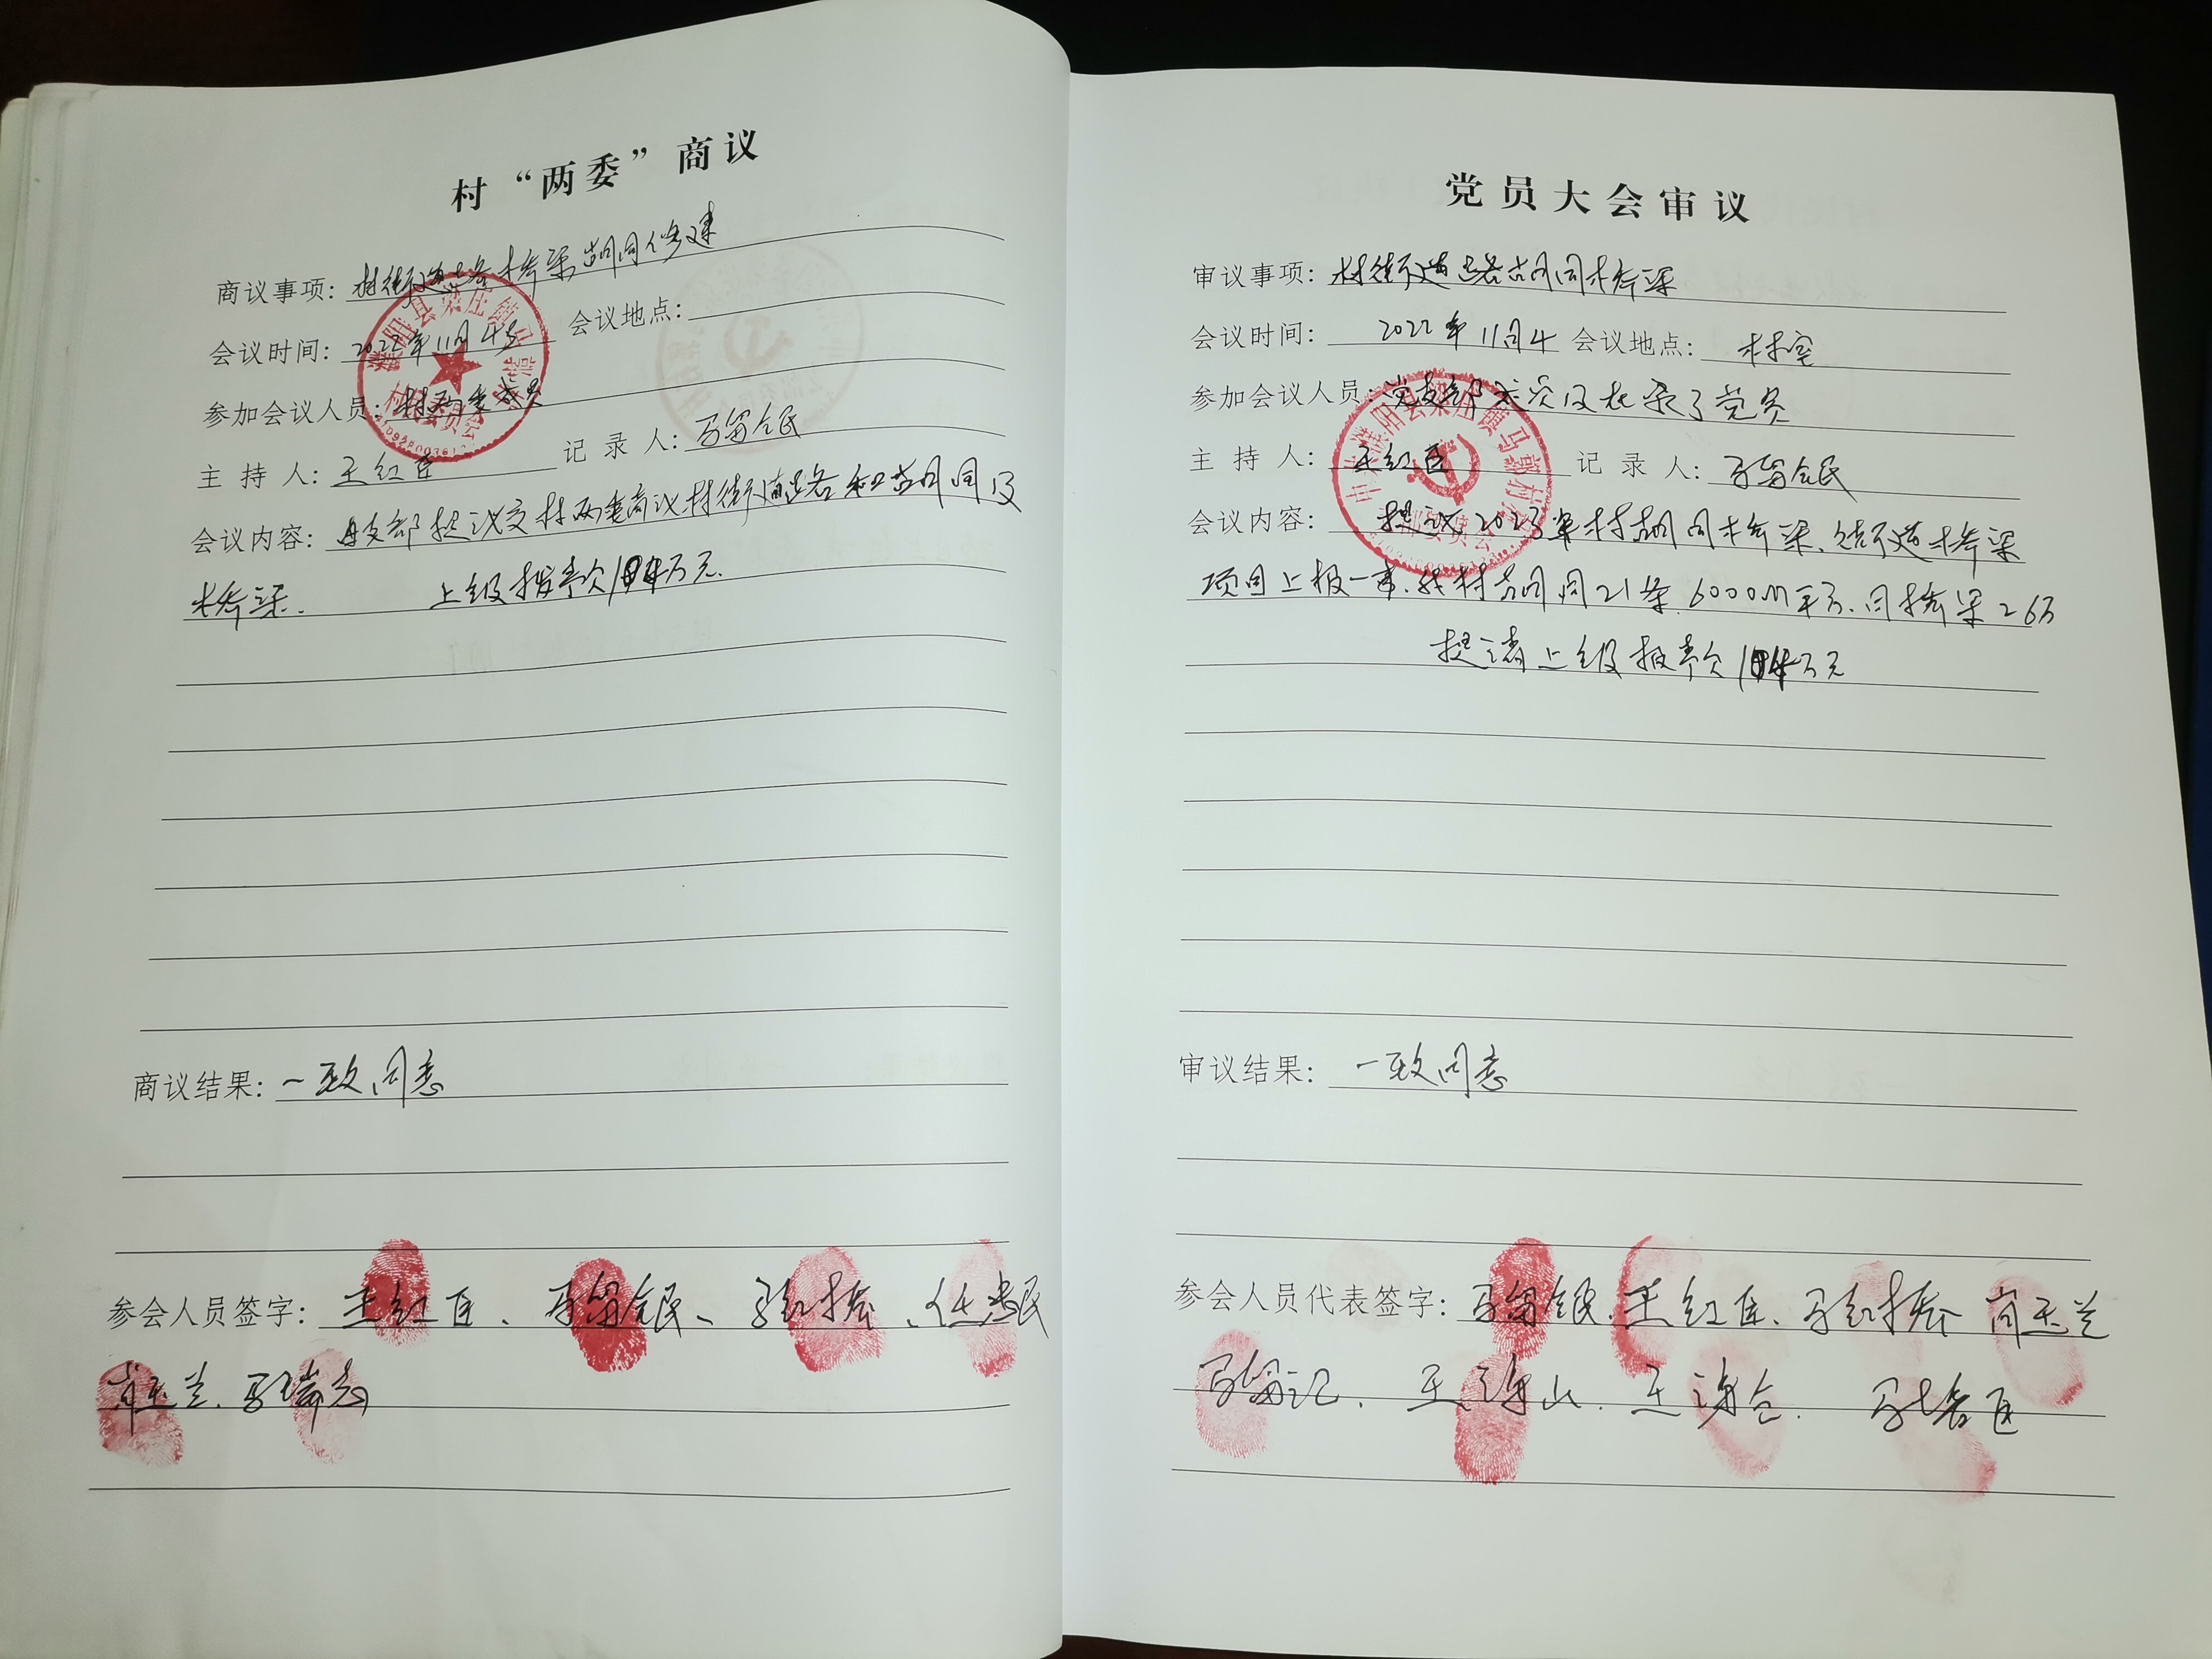 村“两委”商议
商议事项：村街道道路桥梁胡同修建
会议时间：2022年11月4号 会议地点：
参加会议人员：村两委成员
主持人：王红臣 记录人：马留全民
会议内容：支部提议交村两委商议村街道道路和胡同及
桥梁. 上级拨款万元.
商议结果：一致同意
参会人员签字：王红臣、马留全民、马红振、任民
肖玉兰.马瑞志
党员大会审议
审议事项：村街道道路胡同桥梁
会议时间：2022年11月4 会议地点：村室
参加会议人员：党支部成员及党员
主持人：王红臣 记录人：马留全民
会议内容：提议2023年村胡同桥梁.街道桥梁
项目上报一事.我村胡同21条.6000m平方.同桥梁26万
提请上级拨款万元
审议结果：一致同意
参会人员代表签字：马留全民.王红臣.马红振 肖玉兰
马留记.王海山.王海全.马臣